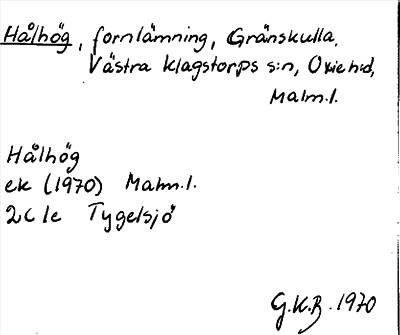 Hålhög, fornlämning, Gränskulla,
Västra Klagstorps s:n, Oxie h:d,
Malm.l.
Hålhög
ek (1970) Malm.l.
2C 1e Tygelsjö
G.K.B. 1970